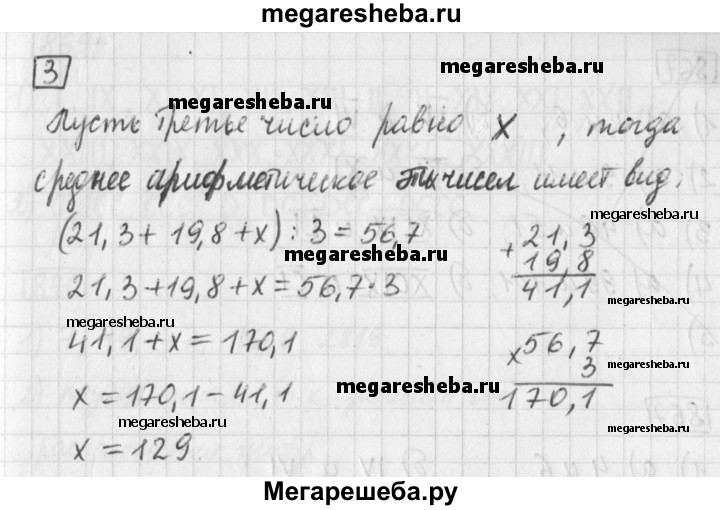 megaresheba.ru
3
megaresheba.ru
megaresheba.ru
Пусть третье число равно x , тогда
среднее арифметическое этих чисел имеет вид:
megaresheba.ru
(21,3 + 19,8 + x) : 3 = 56,7
+ 21,3
19,8
41,1
21,3 + 19,8 + x = 56,7 · 3
megaresheba.ru
megaresheba.ru
41,1 + x = 170,1
x 56,7
3
170,1
megaresheba.ru
x = 170,1 - 41,1
megaresheba.ru
megaresheba.ru
megaresheba.ru
x = 129
Мегарешеба.ру